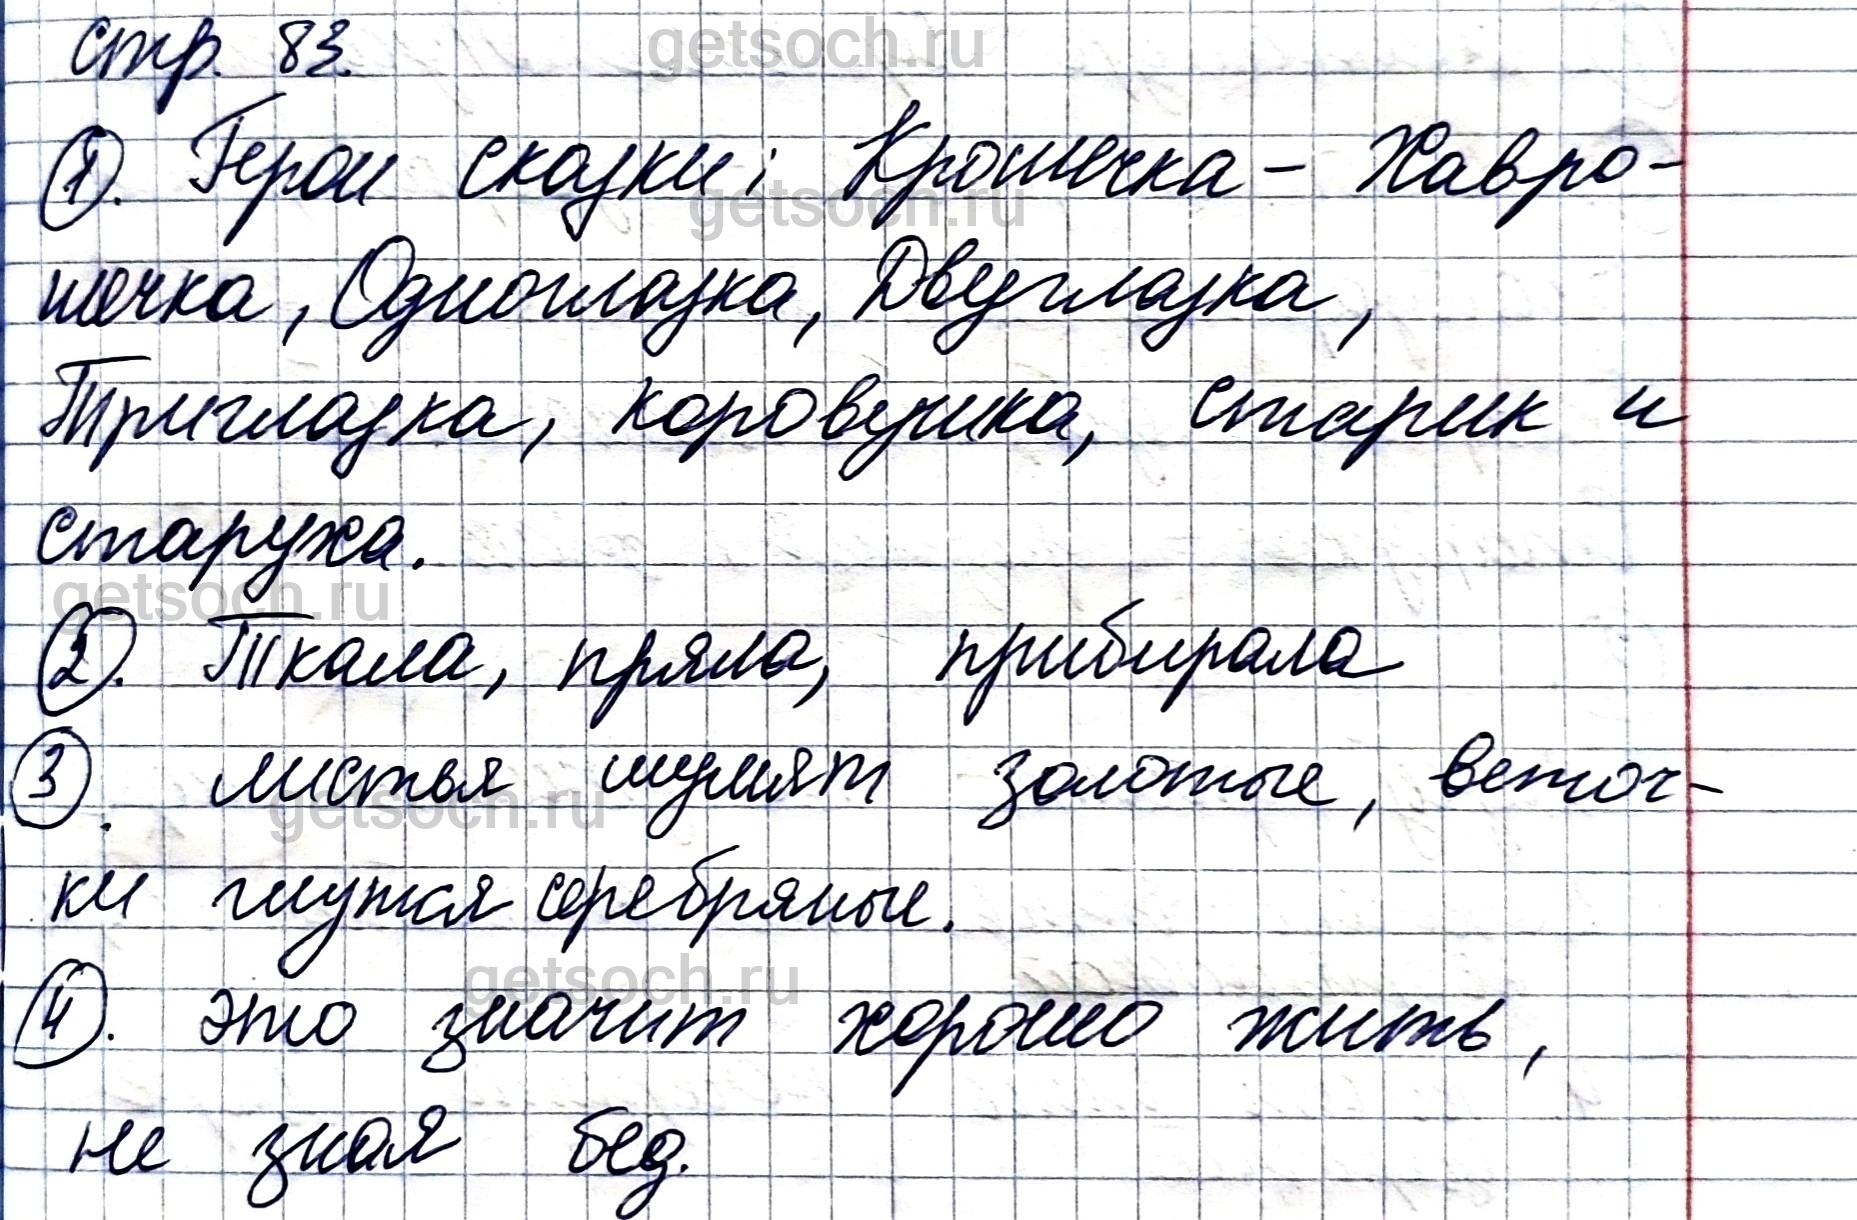 стр. 83.
getsoch.ru
1. Герои сказки: Крошечка - Хавро-
getsoch.ru
шечка, Одноглазка, Двуглазка,
Триглазка, коровушка, старик и
старуха.
getsoch.ru
2. Ткала, пряла, прибирала
3. листья шумят золотые, веточ-
getsoch.ru
ки гнутся серебряные.
getsoch.ru
4. это значит хорошо жить,
не зная бед.